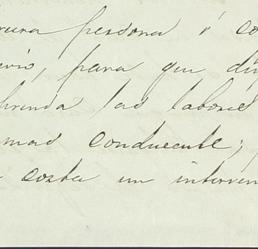 persona ó co
para que di
las labore
mas conducente;
costa un interven